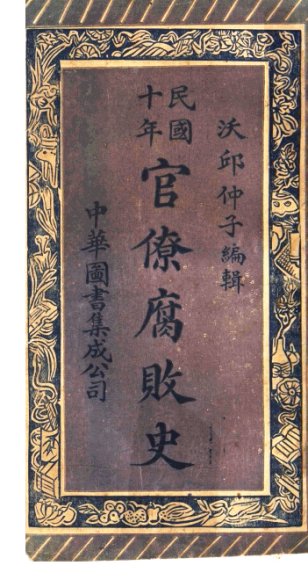 沃邱仲子編輯
民國
十年
官僚腐敗史
中華圖書集成公司